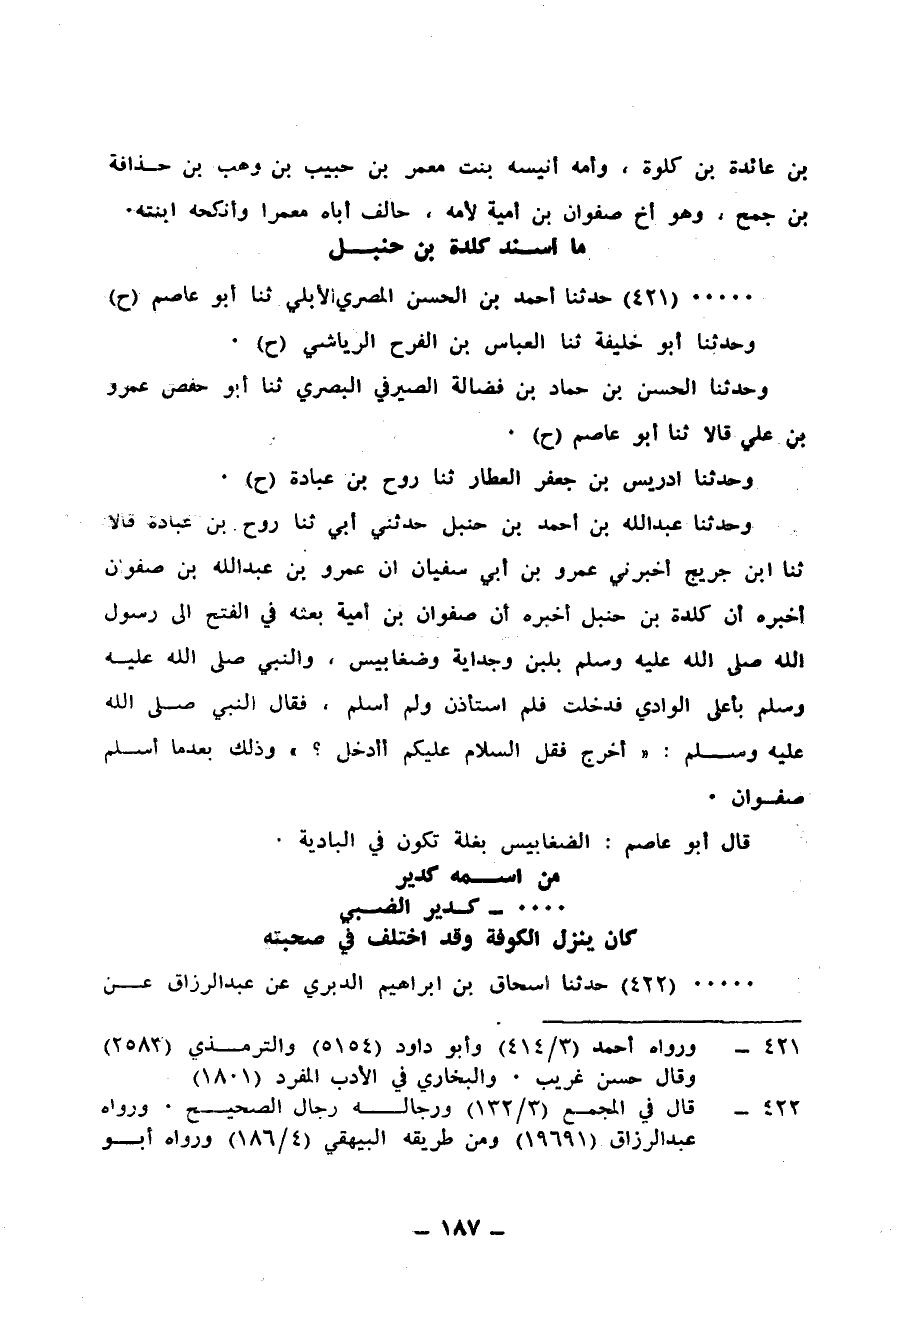 بن عائدة بن كلوة ، وأمه أنيسه بنت معمر بن حبيب بن وهب بن حذافة
بن جمح ، وهو أخ صفوان بن أمية لأمه ، حالف أباه معمرا وأنكحه ابنته ·
ما أسند كلدة بن حنبل
····· (٤٢١) حدثنا أحمد بن الحسن المصري الأبلي ثنا أبو عاصم (ح)
وحدثنا أبو خليفة ثنا العباس بن الفرح الرياشي (ح) ·
وحدثنا الحسن بن حماد بن فضالة الصيرفي البصري ثنا أبو حفص عمرو
بن علي قالا ثنا أبو عاصم (ح) ·
وحدثنا ادريس بن جعفر العطار ثنا روح بن عبادة (ح) ·
وحدثنا عبدالله بن أحمد بن حنبل حدثني أبي ثنا روح بن عبادة قالا
ثنا ابن جريج أخبرني عمرو بن أبي سفيان ان عمرو بن عبدالله بن صفوان
أخبره أن كلدة بن حنبل أخبره أن صفوان بن أمية بعثه في الفتح الى رسول
الله صلى الله عليه وسلم بلبن وجداية وضغابيس ، والنبي صلى الله عليه
وسلم بأعلى الوادي فدخلت فلم استأذن ولم أسلم ، فقال النبي صلى الله
عليه وسلم : « أخرج فقل السلام عليكم أأدخل ؟ » وذلك بعدما أسلم
صفوان ·
قال أبو عاصم : الضغابيس بغلة تكون في البادية ·
من اسمه كدير
···· – كدير الضبي
كان ينزل الكوفة وقد اختلف في صحبته
····· (٤٢٢) حدثنا اسحاق بن ابراهيم الدبري عن عبدالرزاق عن
٤٢١ – ورواه أحمد (٤١٤/٣) وأبو داود (٥١٥٤) والترمذي (٢٥٨٣)
وقال حسن غريب · والبخاري في الأدب المفرد (١٨٠١)
٤٢٢ – قال في المجمع (١٣٢/٣) ورجاله رجال الصحيح · ورواه
عبدالرزاق (١٩٦٩١) ومن طريقه البيهقي (١٨٦/٤) ورواه أبو
– ١٨٧ –